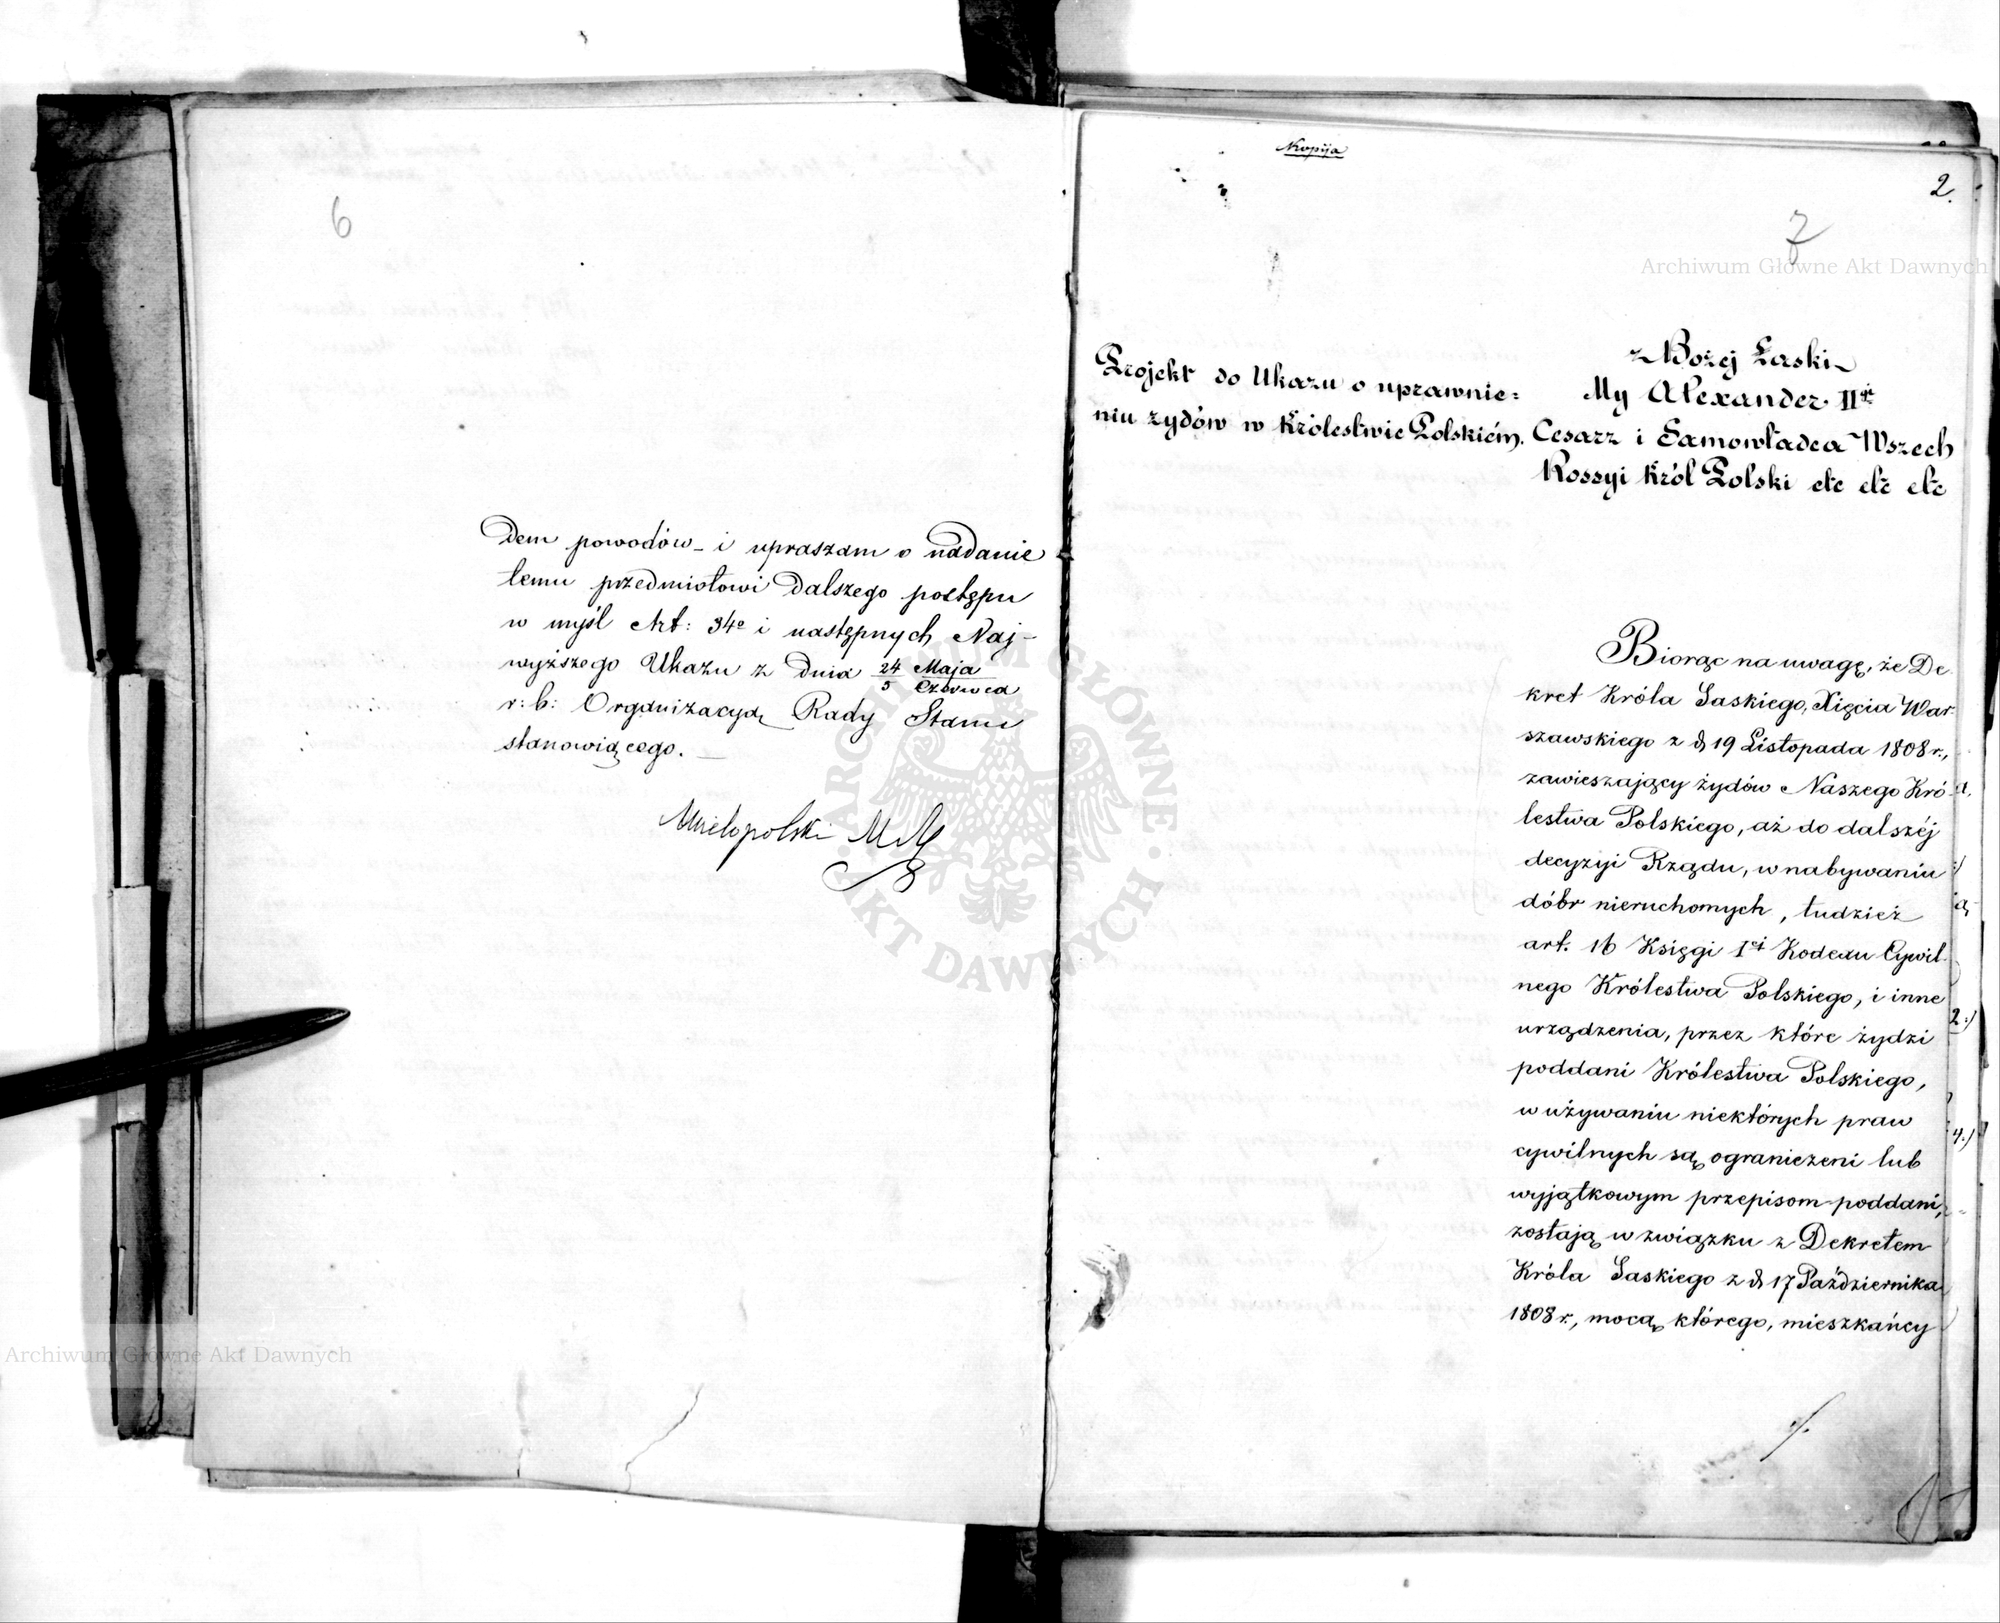 6
dem powodów_ i upraszam o nadanie
temu przedmiotowi dalszego postępu
w myśl Art: 34º i następnych Naj-
wyższego Ukazu z dnia 24 Maja / 5 Czerwca
r: b: Organizacyą Rady Stanu
stanowiącego. —
Wielopolski
Kopija
2.
7
Archiwum Główne Akt Dawnych
Projekt do Ukazu o uprawnie=
niu żydów w Królestwie Polskiém.
z Bożej Łaski
My Alexander II
Cesarz i Samowładca Wszech
Rossyi Król Polski etc etc etc
Biorąc na uwagę, że De-
kret Króla Saskiego, Xięcia War-
szawskiego z d 19 Listopada 1808 r.,
zawieszający żydów Naszego Kró-
lestwa Polskiego, aż do dalszéj
decyzyi Rządu, w nabywaniu
dóbr nieruchomych, tudzież
art. 16 Księgi Iéj Kodexu Cywil-
nego Królestwa Polskiego, i inne
urządzenia, przez które żydzi
poddani Królestwa Polskiego,
w używaniu niektórych praw
cywilnych są ograniczeni lub
wyjątkowym przepisom poddani,
zostają w związku z Dekretem
Króla Saskiego z d 17 Października
1808 r., mocą którego, mieszkańcy
2.)
4.)
ARCHIWUM GŁÓWNE
· AKT DAWNYCH ·
Archiwum Główne Akt Dawnych